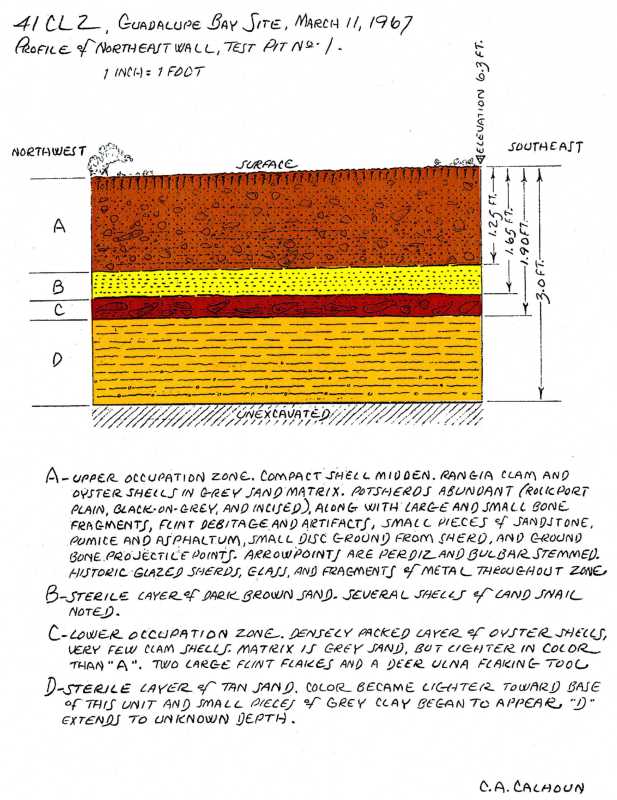 41 CL 2, GUADALUPE BAY SITE, MARCH 11, 1967
PROFILE of NORTHEAST WALL, TEST PIT No. 1.
1 INCH = 1 FOOT
ELEVATION 6.3 FT.
NORTHWEST
SURFACE
SOUTHEAST
A
B
C
D
1.25 FT.
1.65 FT.
1.90 FT.
3.0 FT.
UNEXCAVATED
A-UPPER OCCUPATION ZONE. COMPACT SHELL MIDDEN. RANGIA CLAM AND
OYSTER SHELLS IN GREY SAND MATRIX. POTSHERDS ABUNDANT (ROCKPORT
PLAIN, BLACK-ON-GREY, AND INCISED), ALONG WITH LARGE AND SMALL BONE
FRAGMENTS, FLINT DEBITAGE AND ARTIFACTS, SMALL PIECES of SANDSTONE,
PUMICE AND ASPHALTUM, SMALL DISC GROUND FROM SHERD, AND GROUND
BONE PROJECTILE POINTS. ARROWPOINTS ARE PERDIZ AND BULBAR STEMMED.
HISTORIC GLAZED SHERDS, GLASS, AND FRAGMENTS of METAL THROUGHOUT ZONE
B-STERILE LAYER of DARK BROWN SAND. SEVERAL SHELLS of LAND SNAIL
NOTED.
C-LOWER OCCUPATION ZONE. DENSELY PACKED LAYER of OYSTER SHELLS,
VERY FEW CLAM SHELLS. MATRIX IS GREY SAND, BUT LIGHTER IN COLOR
THAN "A". TWO LARGE FLINT FLAKES AND A DEER ULNA FLAKING TOOL
D-STERILE LAYER of TAN SAND. COLOR BECAME LIGHTER TOWARD BASE
OF THIS UNIT AND SMALL PIECES of GREY CLAY BEGAN TO APPEAR. "D"
EXTENDS TO UNKNOWN DEPTH.
C.A. CALHOUN